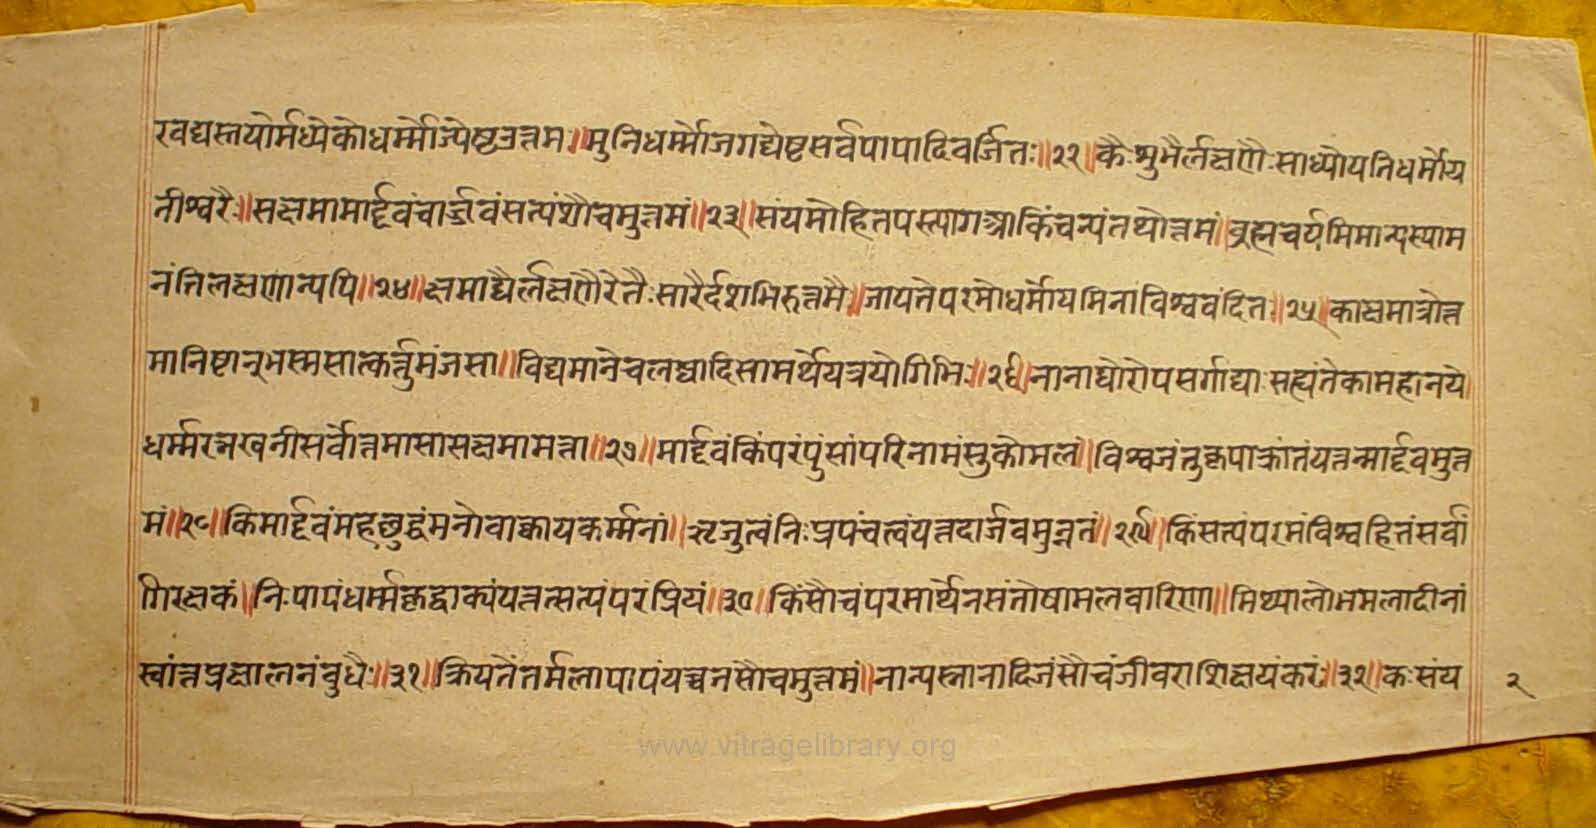 रवद्यस्तयोर्मध्येकोधर्म्मोज्येष्टउत्तम॥मुनिधर्म्मोजगद्येष्टसर्वपापादिवर्जितः॥२२॥कैःशुभैर्लक्षणैःसाध्योयतिधर्मोय
तीश्वरैः॥सक्षमामार्द्दवंचार्ज्जवंसत्यंशौचमुत्तमं॥२३॥संयमोहितपस्त्यागआकिंचन्यंतथोत्तमं॥ब्रह्मचर्यमिमान्यस्याम
नंतिलक्षणान्यपि॥२४॥क्षमाद्यैर्लक्षणैरेतैःसारैर्दशभिरुत्तमैः॥जायतेपरमोधर्मोयमिनांविश्ववंदितः॥२५॥काक्षमात्रोत्त
मानिष्टान्भस्मसात्कर्त्तुमंजसा॥विद्यमानेचलब्ध्यादिसामर्थेयत्रयोगिभिः॥२६॥नानाघोरोपसर्गाद्याःसह्यंतेकामहानये
धर्म्मरत्नखनीसर्वोत्तमासासक्षमामता॥२७॥मार्द्दवंकिंपरंपुंसांपरिनामंसुकोमलं॥विश्वजंतुकृपाक्रांतंयत्तन्मार्द्दवमुत्त
मं॥२८॥किमार्द्दवंमहछुद्धंमनोवाक्कायकर्म्मनां॥ऋजुत्वंनिःप्रपंचत्वंयत्तदार्जवमुन्नतं॥२९॥किंसत्यंपरमंविश्वहितंसर्वां
गिरक्षकं॥निःपापंधर्म्मकृद्वाक्यंयत्तत्सत्यंपरंप्रियं॥३०॥किंसौचंपरमार्थेनसंतोषामलवारिणा॥मिथ्यालोभमलादीनां
स्वांत्तप्रक्षालनंबुधैः॥३१॥क्रियतेंतर्मलापापंयच्चनसौचमुत्तमं॥नान्यस्नानादिजंसौचंजीवराशिक्षयंकरं॥३२॥कःसंय
२
www.vitragelibrary.org